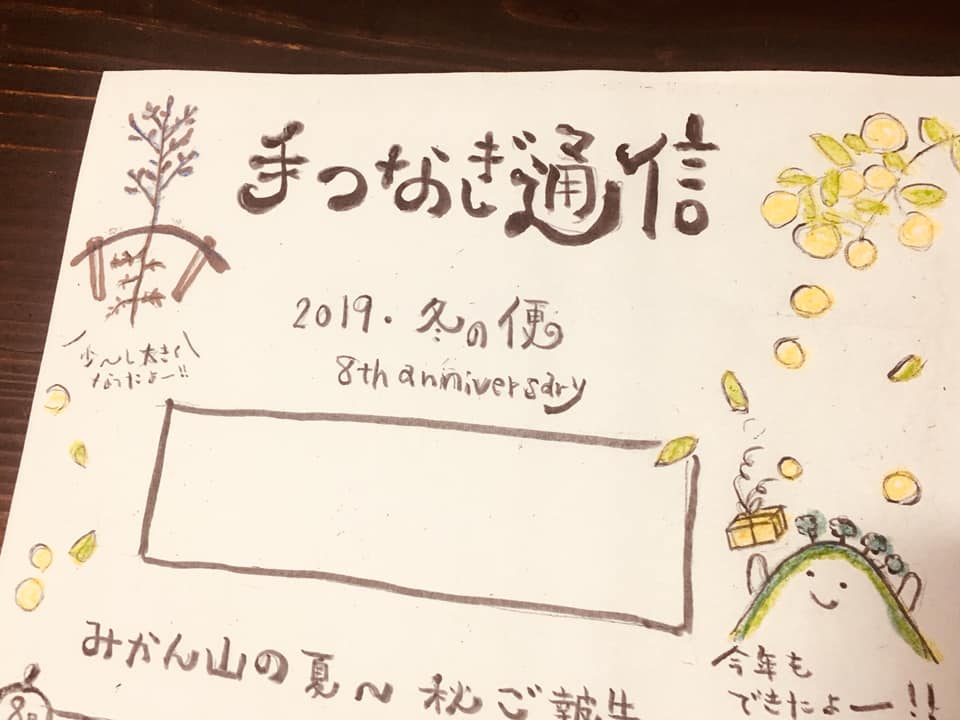 手つなぎ通信
2019.冬の便
8th anniversary
少〜し大きく
なったよー!!
みかん山の夏〜秋ご報告
今年も
できたよー!!